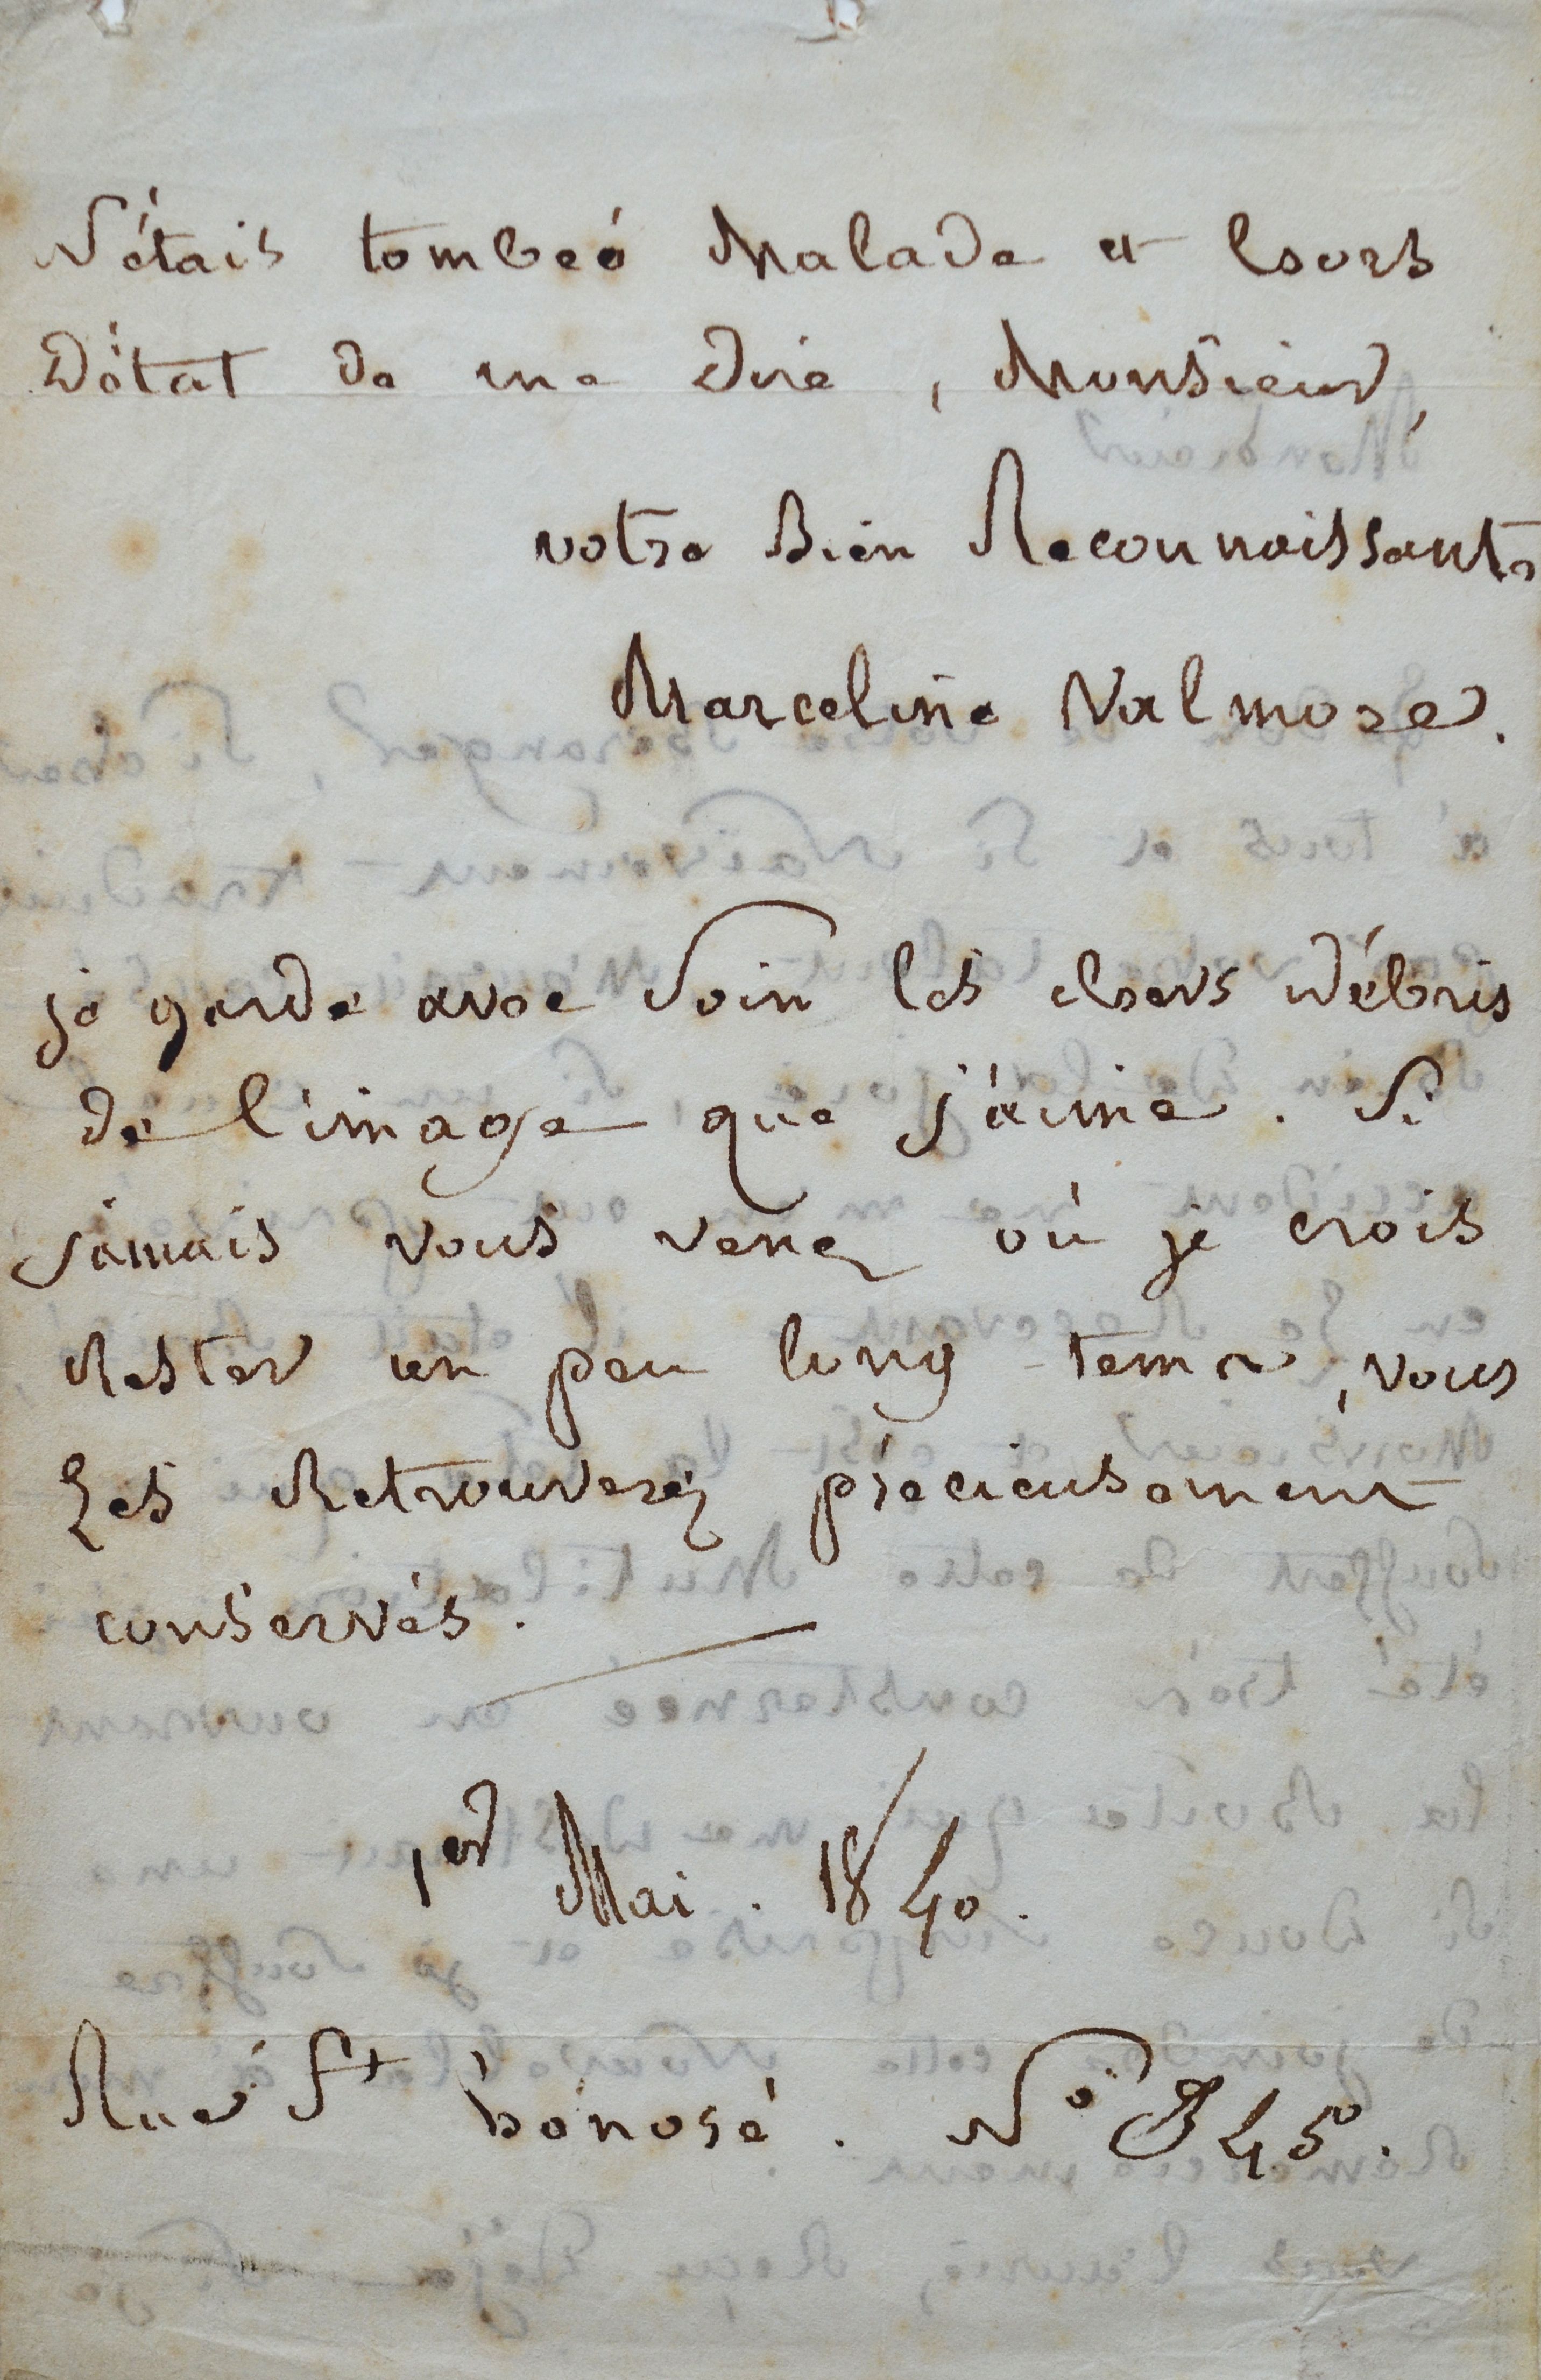 N'étais tombée Malade et hors
D'état de me dire, Monsieur,
votre Bien Reconnaissante
Marceline Valmore.
je garde avec soin les chers débris
de l'image que j'aime. Si
jamais vous venez où je crois
Rester un peu long-tems, vous
Les Retrouverez précieusement
conservés.
1er Mai. 1840.
Rue St honoré. No 345.